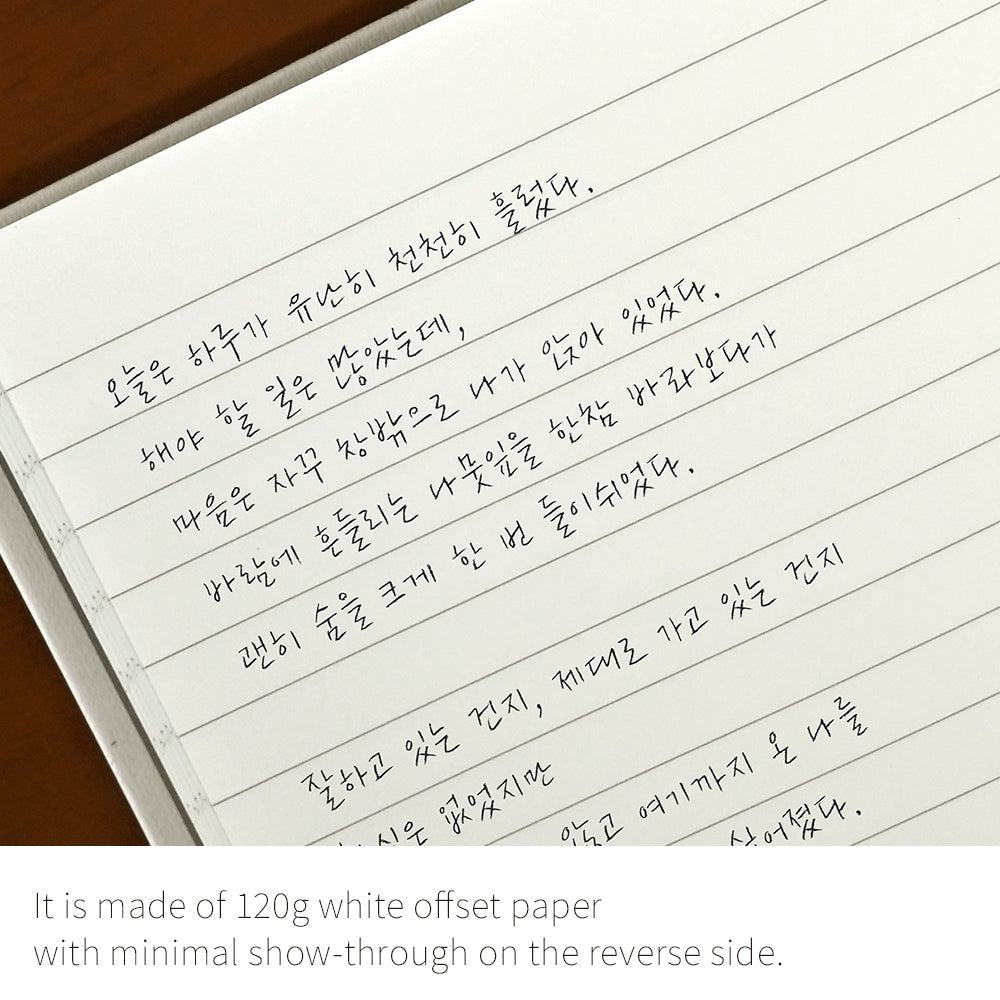 오늘은 하루가 유난히 천천히 흘렀다.
해야 할 일은 많았는데,
마음은 자꾸 창밖으로 나가 앉아 있었다.
바람에 흔들리는 나뭇잎을 한참 바라보다가
괜히 숨을 크게 한 번 들이쉬었다.
잘하고 있는 건지, 제대로 가고 있는 건지
없었지만
않고 여기까지 온 나를
싶어졌다.
It is made of 120g white offset paper
with minimal show-through on the reverse side.